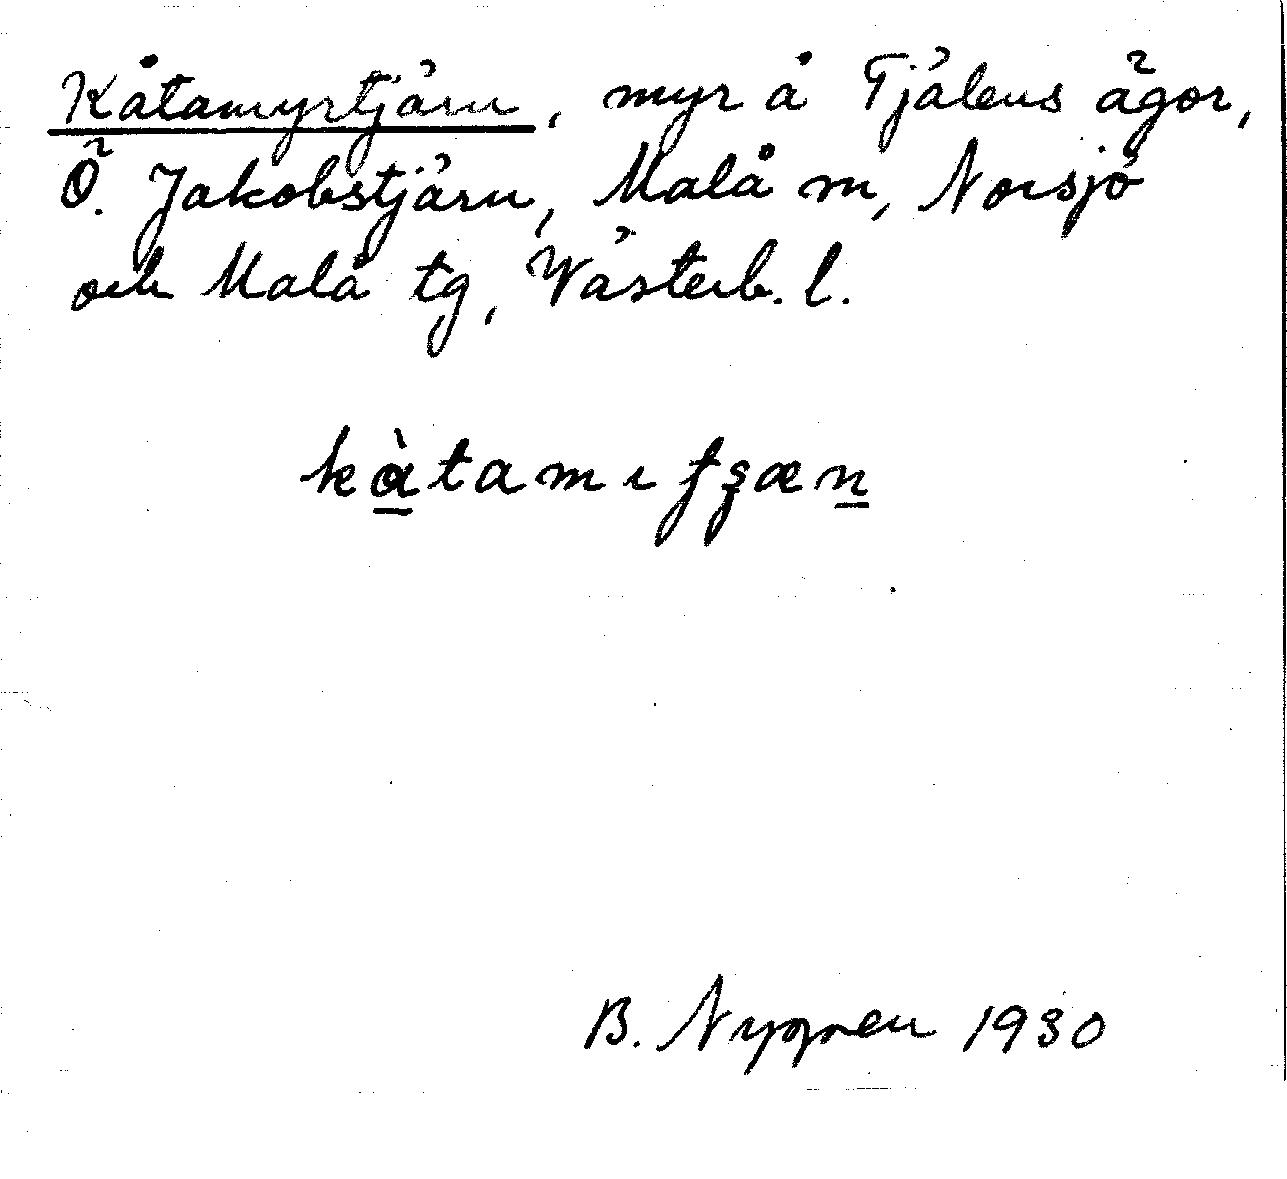 Kåtamyrtjärn, myr å Tjälens ägor,
Ö. Jakobstjärn, Malå m, Norsjö
och Malå tg, Västerb. l.
kàtamıʈʂæn
B. Nygren 1930